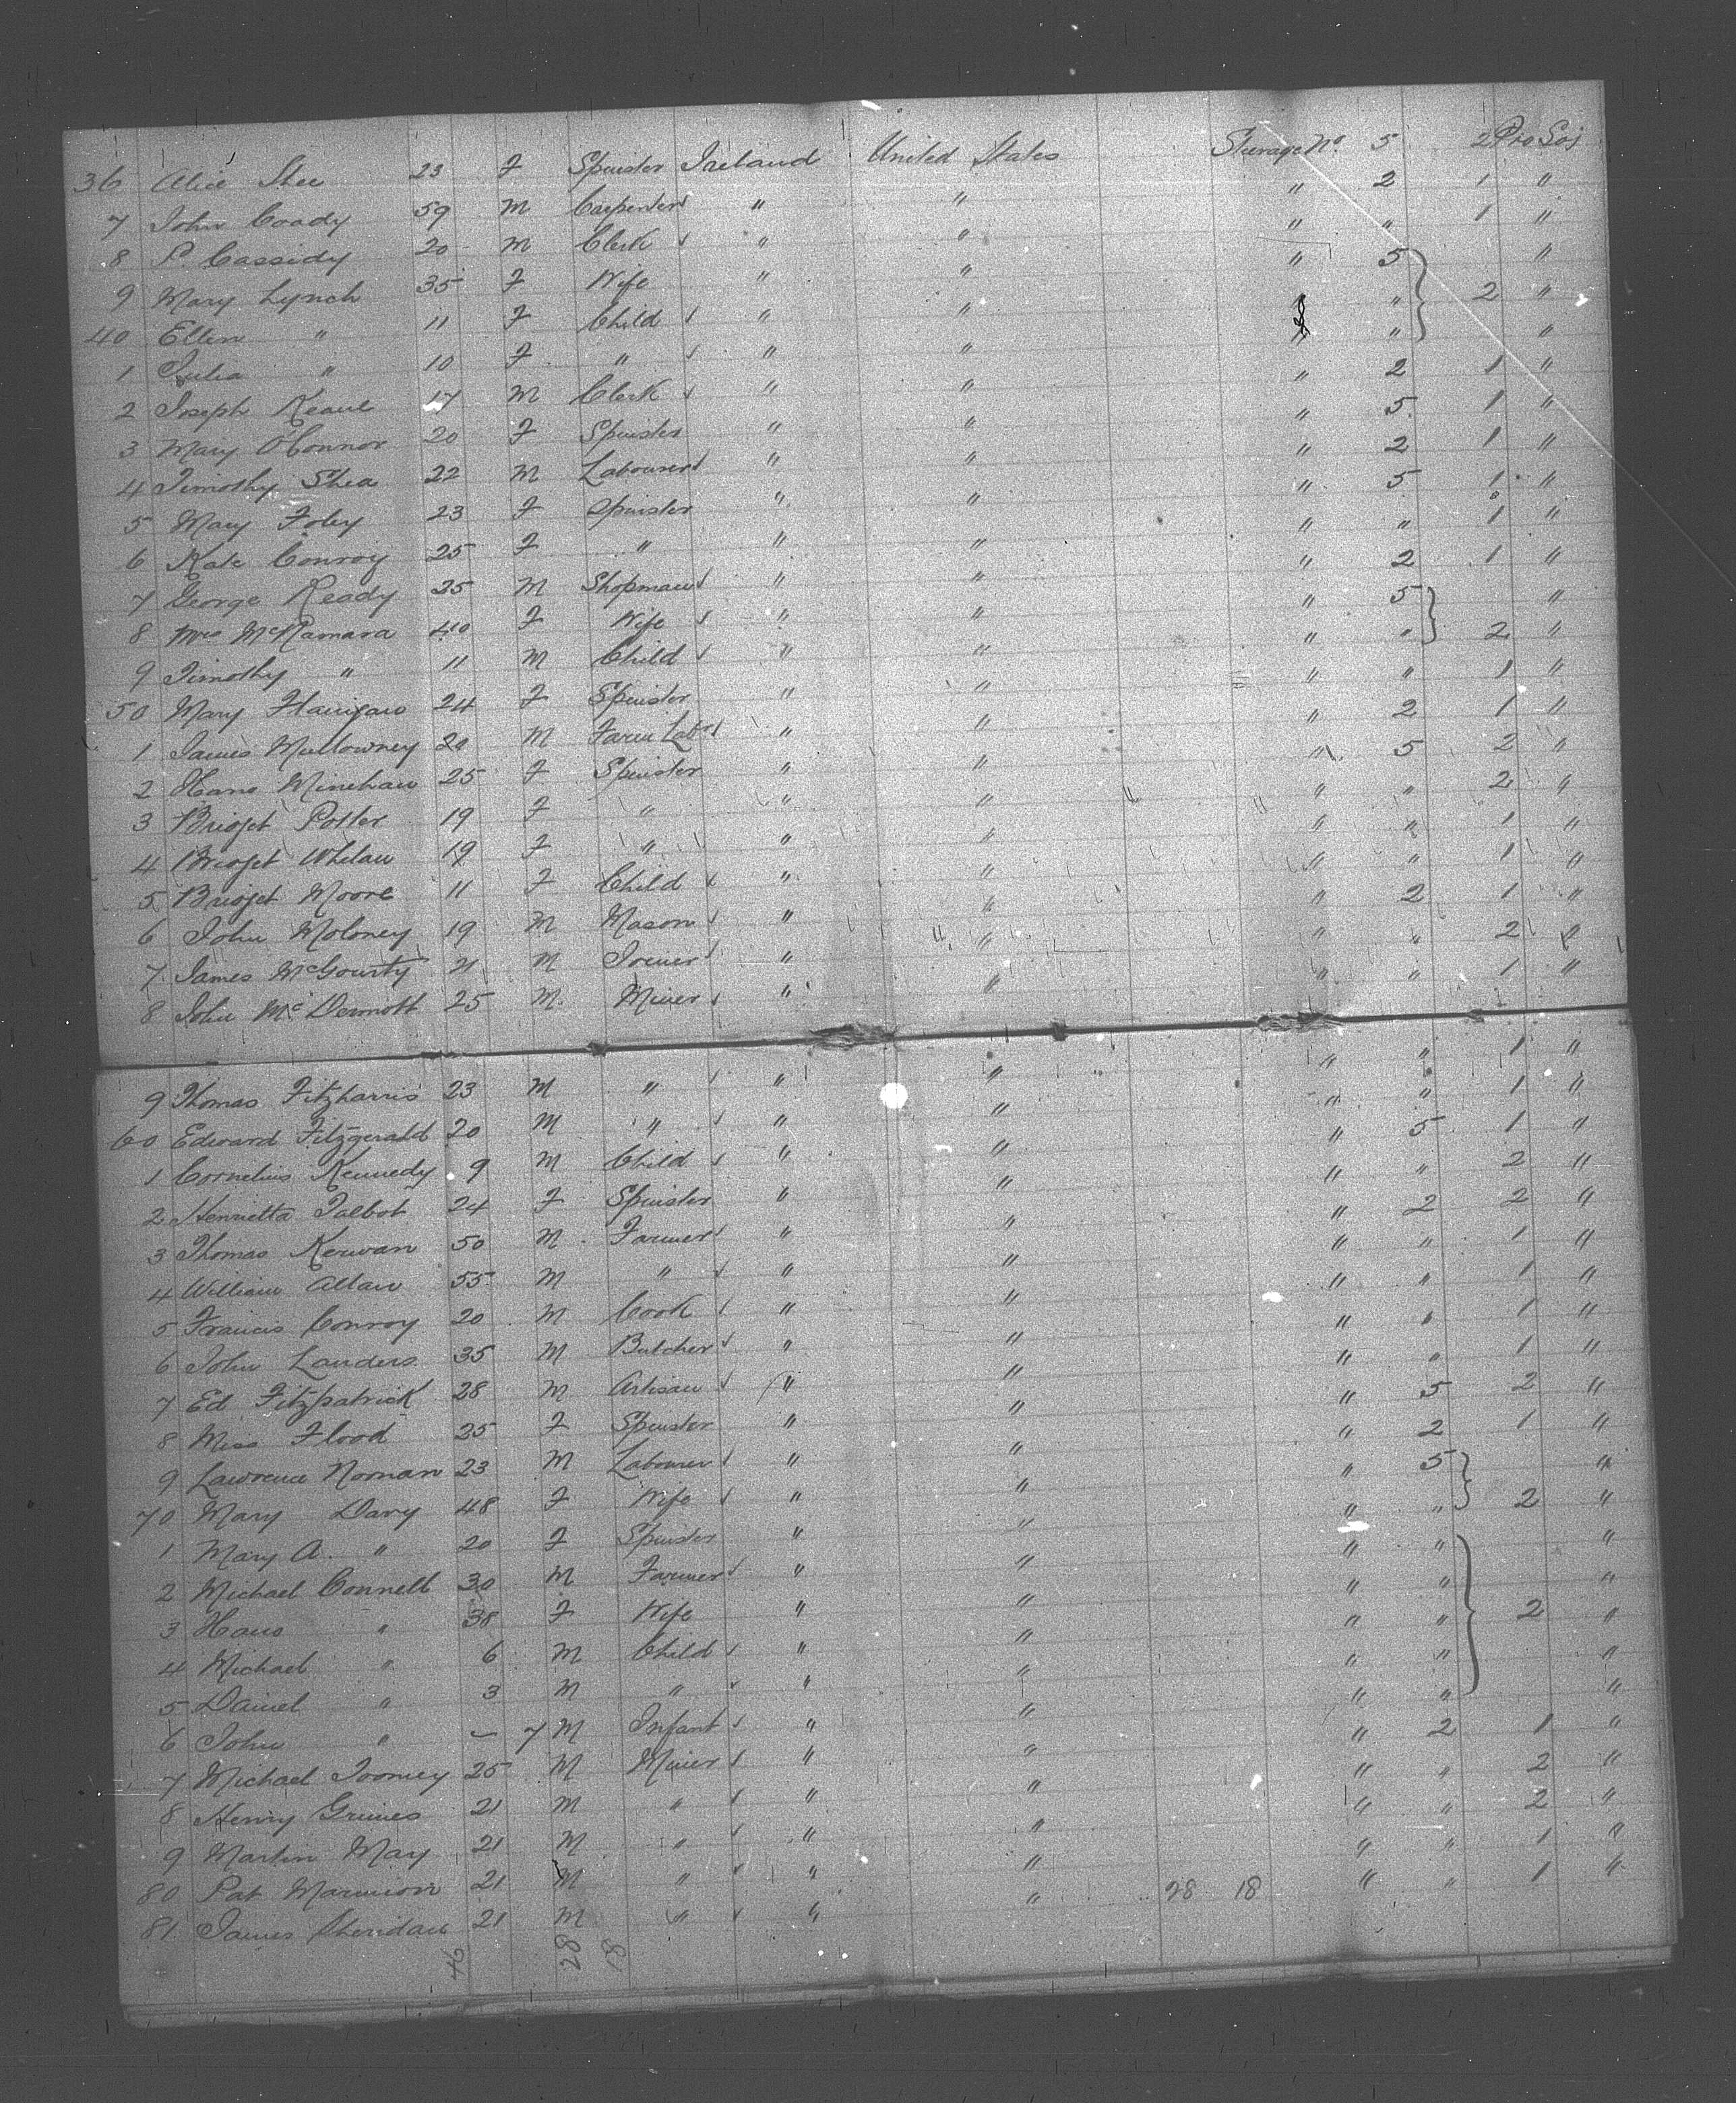 36 Alice Shee 23 F Spinster Ireland United States Steerage No. 5 2 Pro Soj
7 John Coady 59 M Carpenter " " " 2 1 "
8 P. Cassidy 20 M Clerk " " " " 1 "
9 Mary Lynch 35 F Wife " " " 5 "
40 Ellen " 11 F Child " " " 2 "
1 Julia " 10 F " " " " "
2 Joseph Keane 17 M Clerk " " " 2 1 "
3 Mary O'Connor 20 F Spinster " " " 5 1 "
4 Timothy Shea 22 M Labourer " " " 2 1 "
5 Mary Foley 23 F Spinster " " " 5 1 "
6 Kate Conroy 25 F " " " " " 1 "
7 George Keady 35 M Shopman " " " 2 1 "
8 Mrs McNamara 40 F Wife " " " 5 "
9 Timothy " 11 M Child " " " " 2 "
50 Mary Flanigan 24 F Spinster " " " " 1 "
1 James Mullowney 20 M Farm Labr " " " 2 1 "
2 Hano Minehan 25 F Spinster " " " 5 2 "
3 Bridget Potter 19 F " " " " " 2 "
4 Bridget Whelan 19 F " " " " " 1 "
5 Bridget Moore 11 F Child " " " " 1 "
6 John Moloney 19 M Mason " " " 2 1 "
7 James McGourty 21 M Joiner " " " " 2 "
8 John McDermott 25 M Miner " " " " 1 "
9 Thomas Fitzharris 23 M " " " " " 1 "
60 Edward Fitzgerald 20 M " " " " " 1 "
1 Cornelius Kennedy 9 M Child " " " 5 1 "
2 Henrietta Talbot 24 F Spinster " " " " 2 "
3 Thomas Kerwan 50 M Farmer " " " 2 2 "
4 William Allan 55 M " " " " " 1 "
5 Francis Conroy 20 M Cook " " " " 1 "
6 John Landers 35 M Butcher " " " " 1 "
7 Ed Fitzpatrick 28 M Artisan " " " " 1 "
8 Miss Flood 25 F Spinster " " " 5 2 "
9 Lawrence Noonan 23 M Labourer " " " 2 1 "
70 Mary Davy 48 F Wife " " " 5 "
1 Mary A. " 20 F Spinster " " " " 2 "
2 Michael Connell 30 M Farmer " " " " "
3 Hano " 38 F Wife " " " " "
4 Michael " 6 M Child " " " " 2 "
5 Daniel " 3 M " " " " " "
6 John " – 7 M Infant " " " " "
7 Michael Toomey 25 M Miner " " " 2 1 "
8 Henry Grimes 21 M " " " " " 2 "
9 Martin May 21 M " " " " " 2 "
80 Pat Marmion 21 M " " " " " 1 "
81 James Sheridan 21 M " " " 28 18 " " 1 "
46 28 18